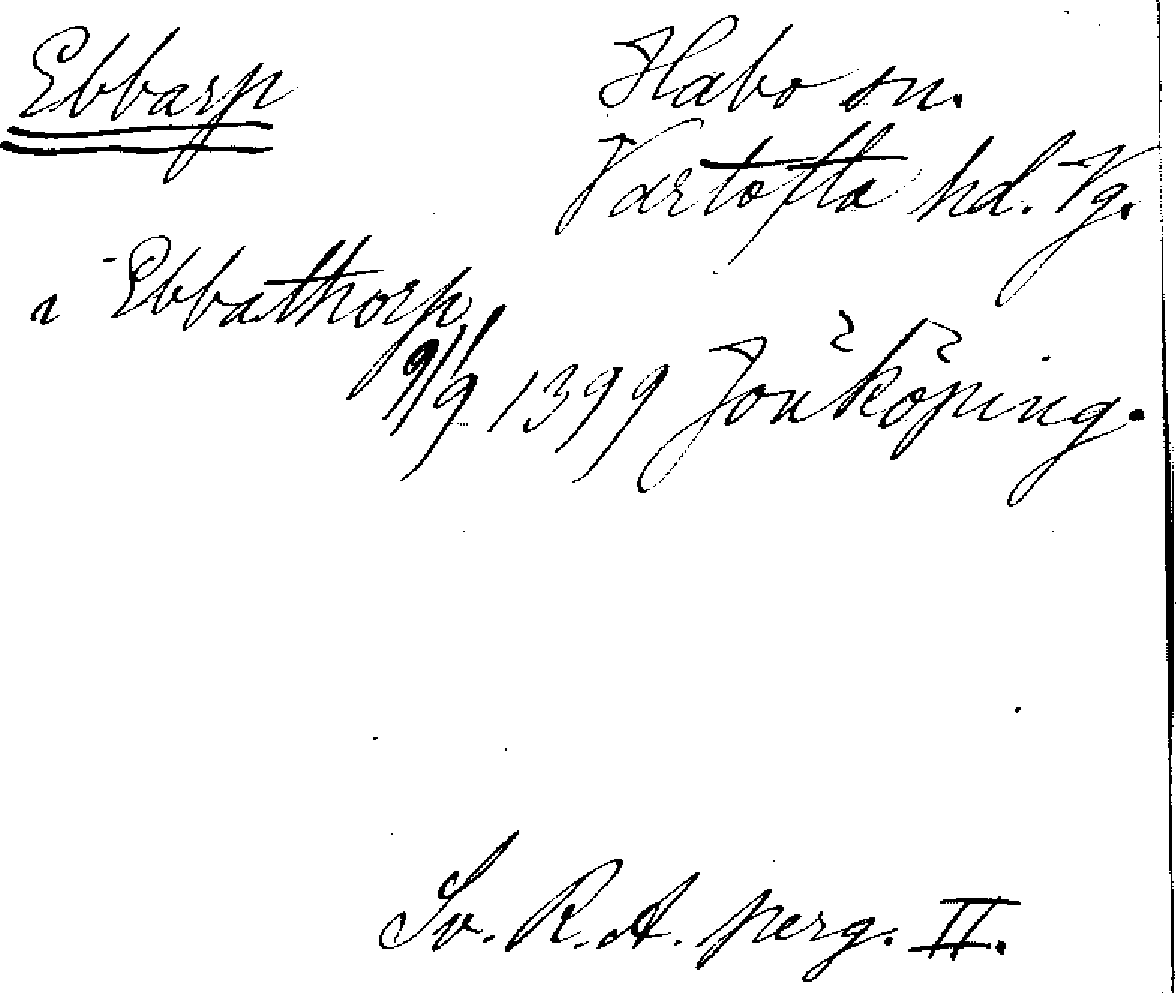 Ebbarp
Habo sn.
Vartofta hd. Vg.
i Ebbathorp
9/9 1399 Jönköping.
Sv. R. A. perg. II.